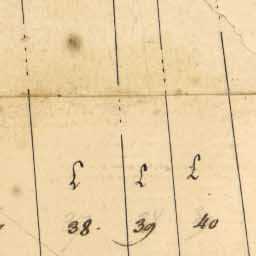 £ £ £
38. 39 40